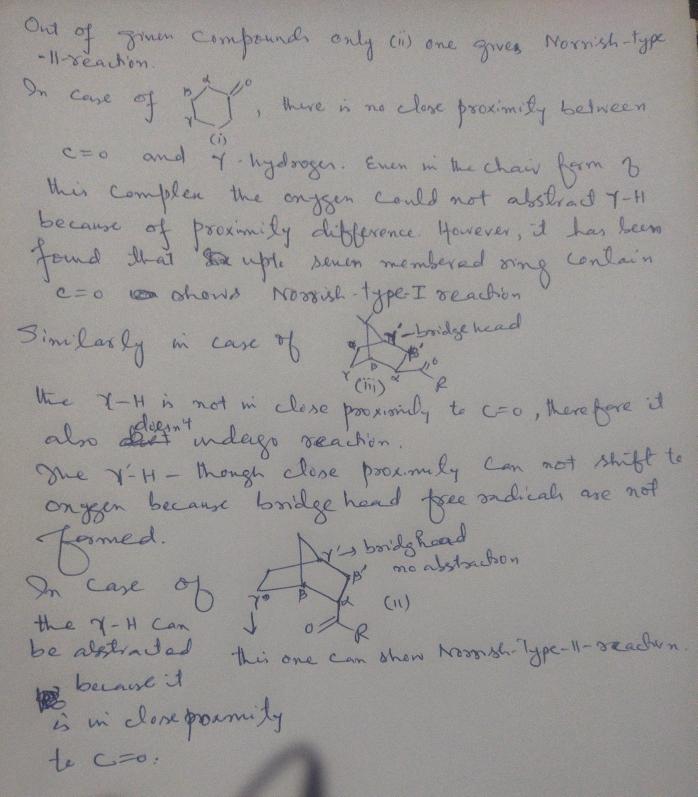 Out of given compounds only (ii) one gives Norrish-type
-II-reaction.
In case of
β α O
γ
(i)
, there is no close proximity between
C=O and γ-hydrogen. Even in the chair form of
this complex the oxygen could not abstract γ-H
because of proximity difference. However, it has been
found that upto seven membered ring contain
C=O shows Norrish-type-I reaction
Similarly in case of
γ'-bridgehead
β'
γ β α O
(iii) R
the γ-H is not in close proximity to C=O, therefore it
also doesn't undergo reaction.
The γ'-H - though close proximity can not shift to
oxygen because bridge head free radicals are not
formed.
γ' → bridghead
no abstraction
β'
In case of
γ β α (ii)
O R
the γ-H can
be abstracted
this one can show Norrish-Type-II-reaction.
because it
is in close poxmity
to C=O.